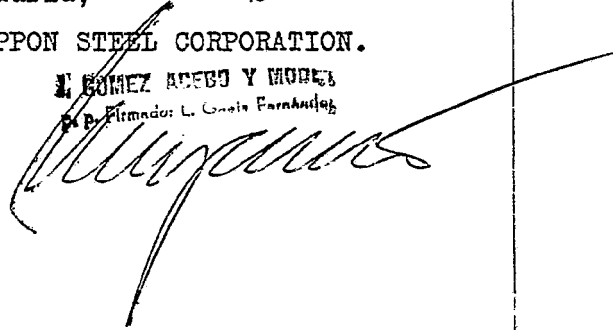 PPON STEEL CORPORATION.
GOMEZ ACEBO Y MODET
p. p. Firmado: L. Garcia Fernandez